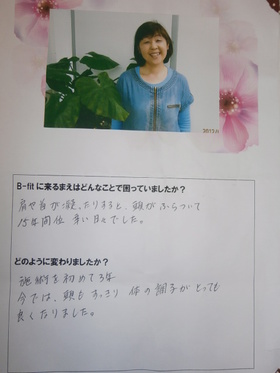 2013.11
B-fit に来るまえはどんなことで困っていましたか？
肩や首が凝ったりすると、頭がふらついて
15年間位 辛い日々でした。
どのように変わりましたか？
施術を初めて3年
今では、頭もすっきり 体の調子がとっても
良くなりました。